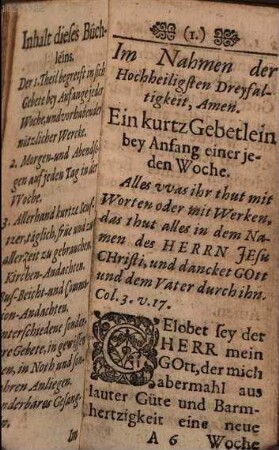 Inhalt dieses Büch-
leins.
Der 1. Theil begreifft in sich
Gebete bey Anfange jeder
Woche, und vorhabender
nützlicher Wercke.
2. Morgen- und Abendse-
gen auf jeden Tag in der
Woche.
3. Allerhand kurtze Seuf-
tzer, täglich, für und zu
aller zeit zu gebrauchen.
Kirchen-Andachten.
Beicht- und Commu-
on-Andachten.
nterschiedene sonder-
re Gebete, in gewissen
en, in Noth und son-
ahren Anliegen.
nderbares Gesang-
n.
Im
(1.)
Im Nahmen der
Hochheiligsten Dreyfal-
tigkeit, Amen.
Ein kurtz Gebetlein
bey Anfang einer je-
den Woche.
Alles vvas ihr thut mit
Worten oder mit Werken,
das thut alles in dem Na-
men des HERRN JESu
CHristi, und dancket GOtt
und dem Vater durch ihn.
Col. 3. v. 17.
GElobet sey der
HERR mein
GOtt, der mich
abermahl aus
lauter Güte und Barm-
hertzigkeit eine neue
A 6 Woche